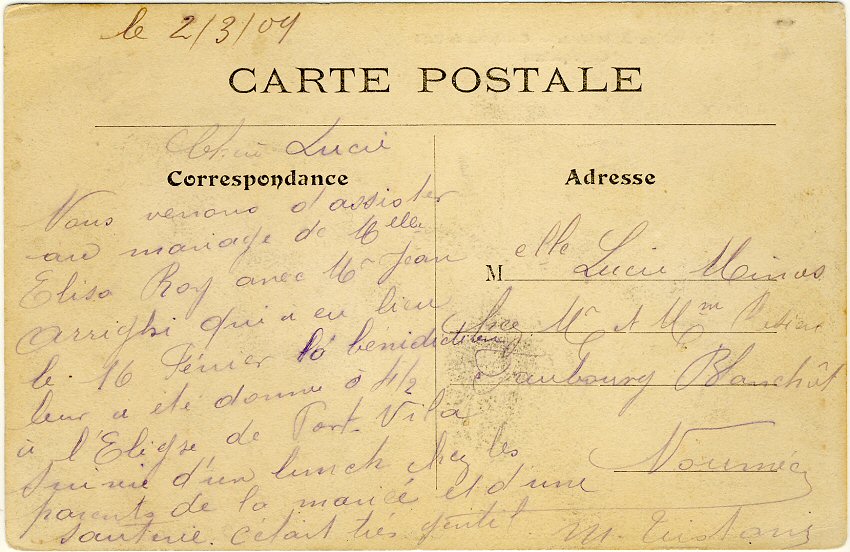 le 2/3/09
CARTE POSTALE
Lucie
Correspondance
Nous venons d'assister
au mariage de Melle
Elisa Roy avec Mr Jean
Arrighi qui a eu lieu
le 16 Février la bénédiction
leur a été donné à 4/2
à l'Eligse de Port-Vila
suivie d'un lunch chez les
parents de la marieé et d'une
sauterie. c'était très gentil
Adresse
Melle Lucie Minos
Mr et Mm
Faubourg Blanchôt
Nouméa